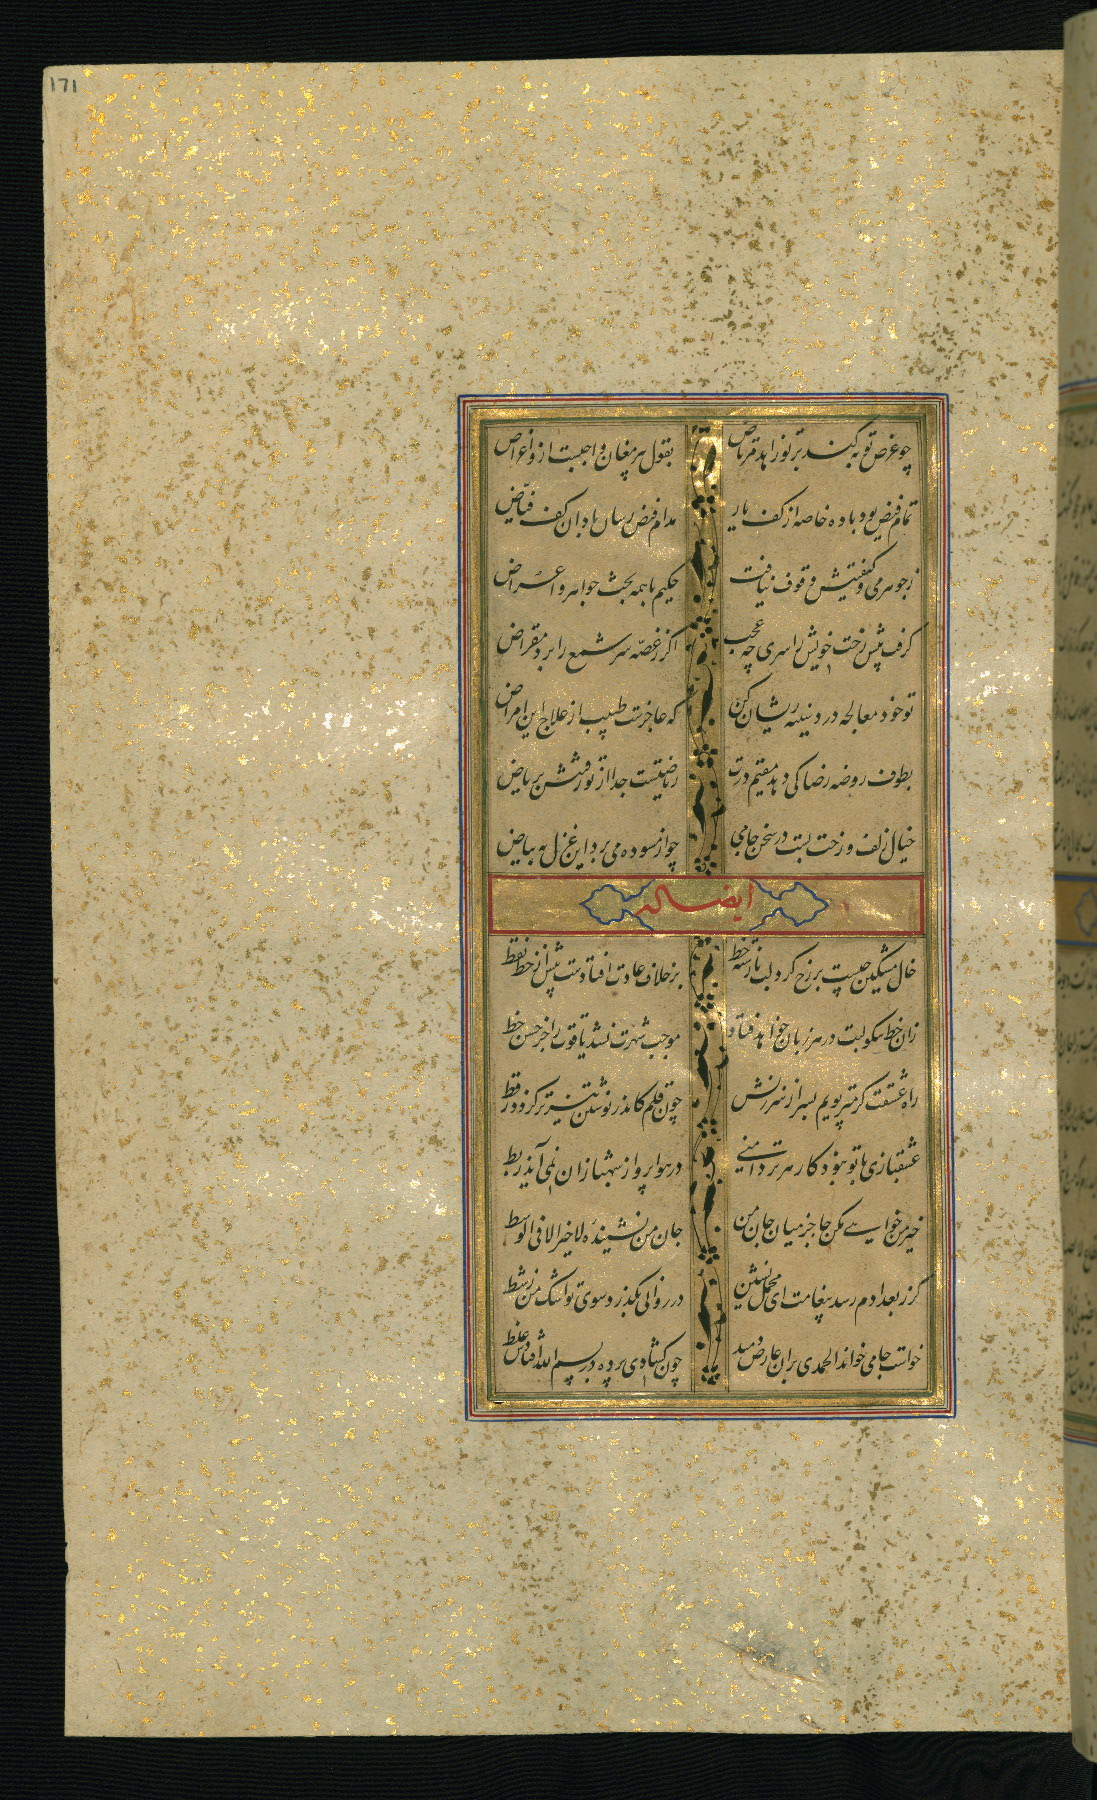 ١٧١
چو غرض توبه کند بر تو زاهد مرتاض بقول پیر مغان واجبست ازو اعراض
تمام فیض بود باده خاصه از کف یار مدام فیض رسان باد آن کف فیاض
ز جوهر می و کیفیتش وقوف نیافت حکیم با همه بحث جواهر و اعراض
گرفت پیش رخت خویش را سری چه عجب اگر ز غصه سر شمع را برد مقراض
تو خود معالجه درد سینه ریشان کن که عاجزست طبیب از علاج این امراض
بطوف روضه رضا کی دهد مقیم درت ریاضتیست جدا از تو رفتنش بریاض
خیال زلف و رخت بست در سخن جامی چو از مسوده می برد این غزل به بیاض
ایضا له
خال مشکین چیست بر رخ گرد لب نارسته خط بر خلاف عادت افتادست پیش از خط نقط
زان خط نیکو لبت در هر زبان خواهد فتاد موجب شهرت نشد یاقوت را جز حسن خط
راه عشقت گر بسر پویم بسر از سرزنش چون قلم کاندر نوشتن تیزتر گردد ز قط
عشقبازی با تو نبود کار هر تردامنی در هوا پرواز شهبازان نمی آید ز بط
خیر من خواهی مکن جا جز میان جان من جان من نشنیده لا خیر الا فی الوسط
گر ز بغدادم رسد پیغامت ای محمل نشین در روانی بگذرد سوی تو اشک من ز شط
خواست جامی خواند الحمدی بران عارض دمید چون گشادی پرده در بسم الله افتادش غلط